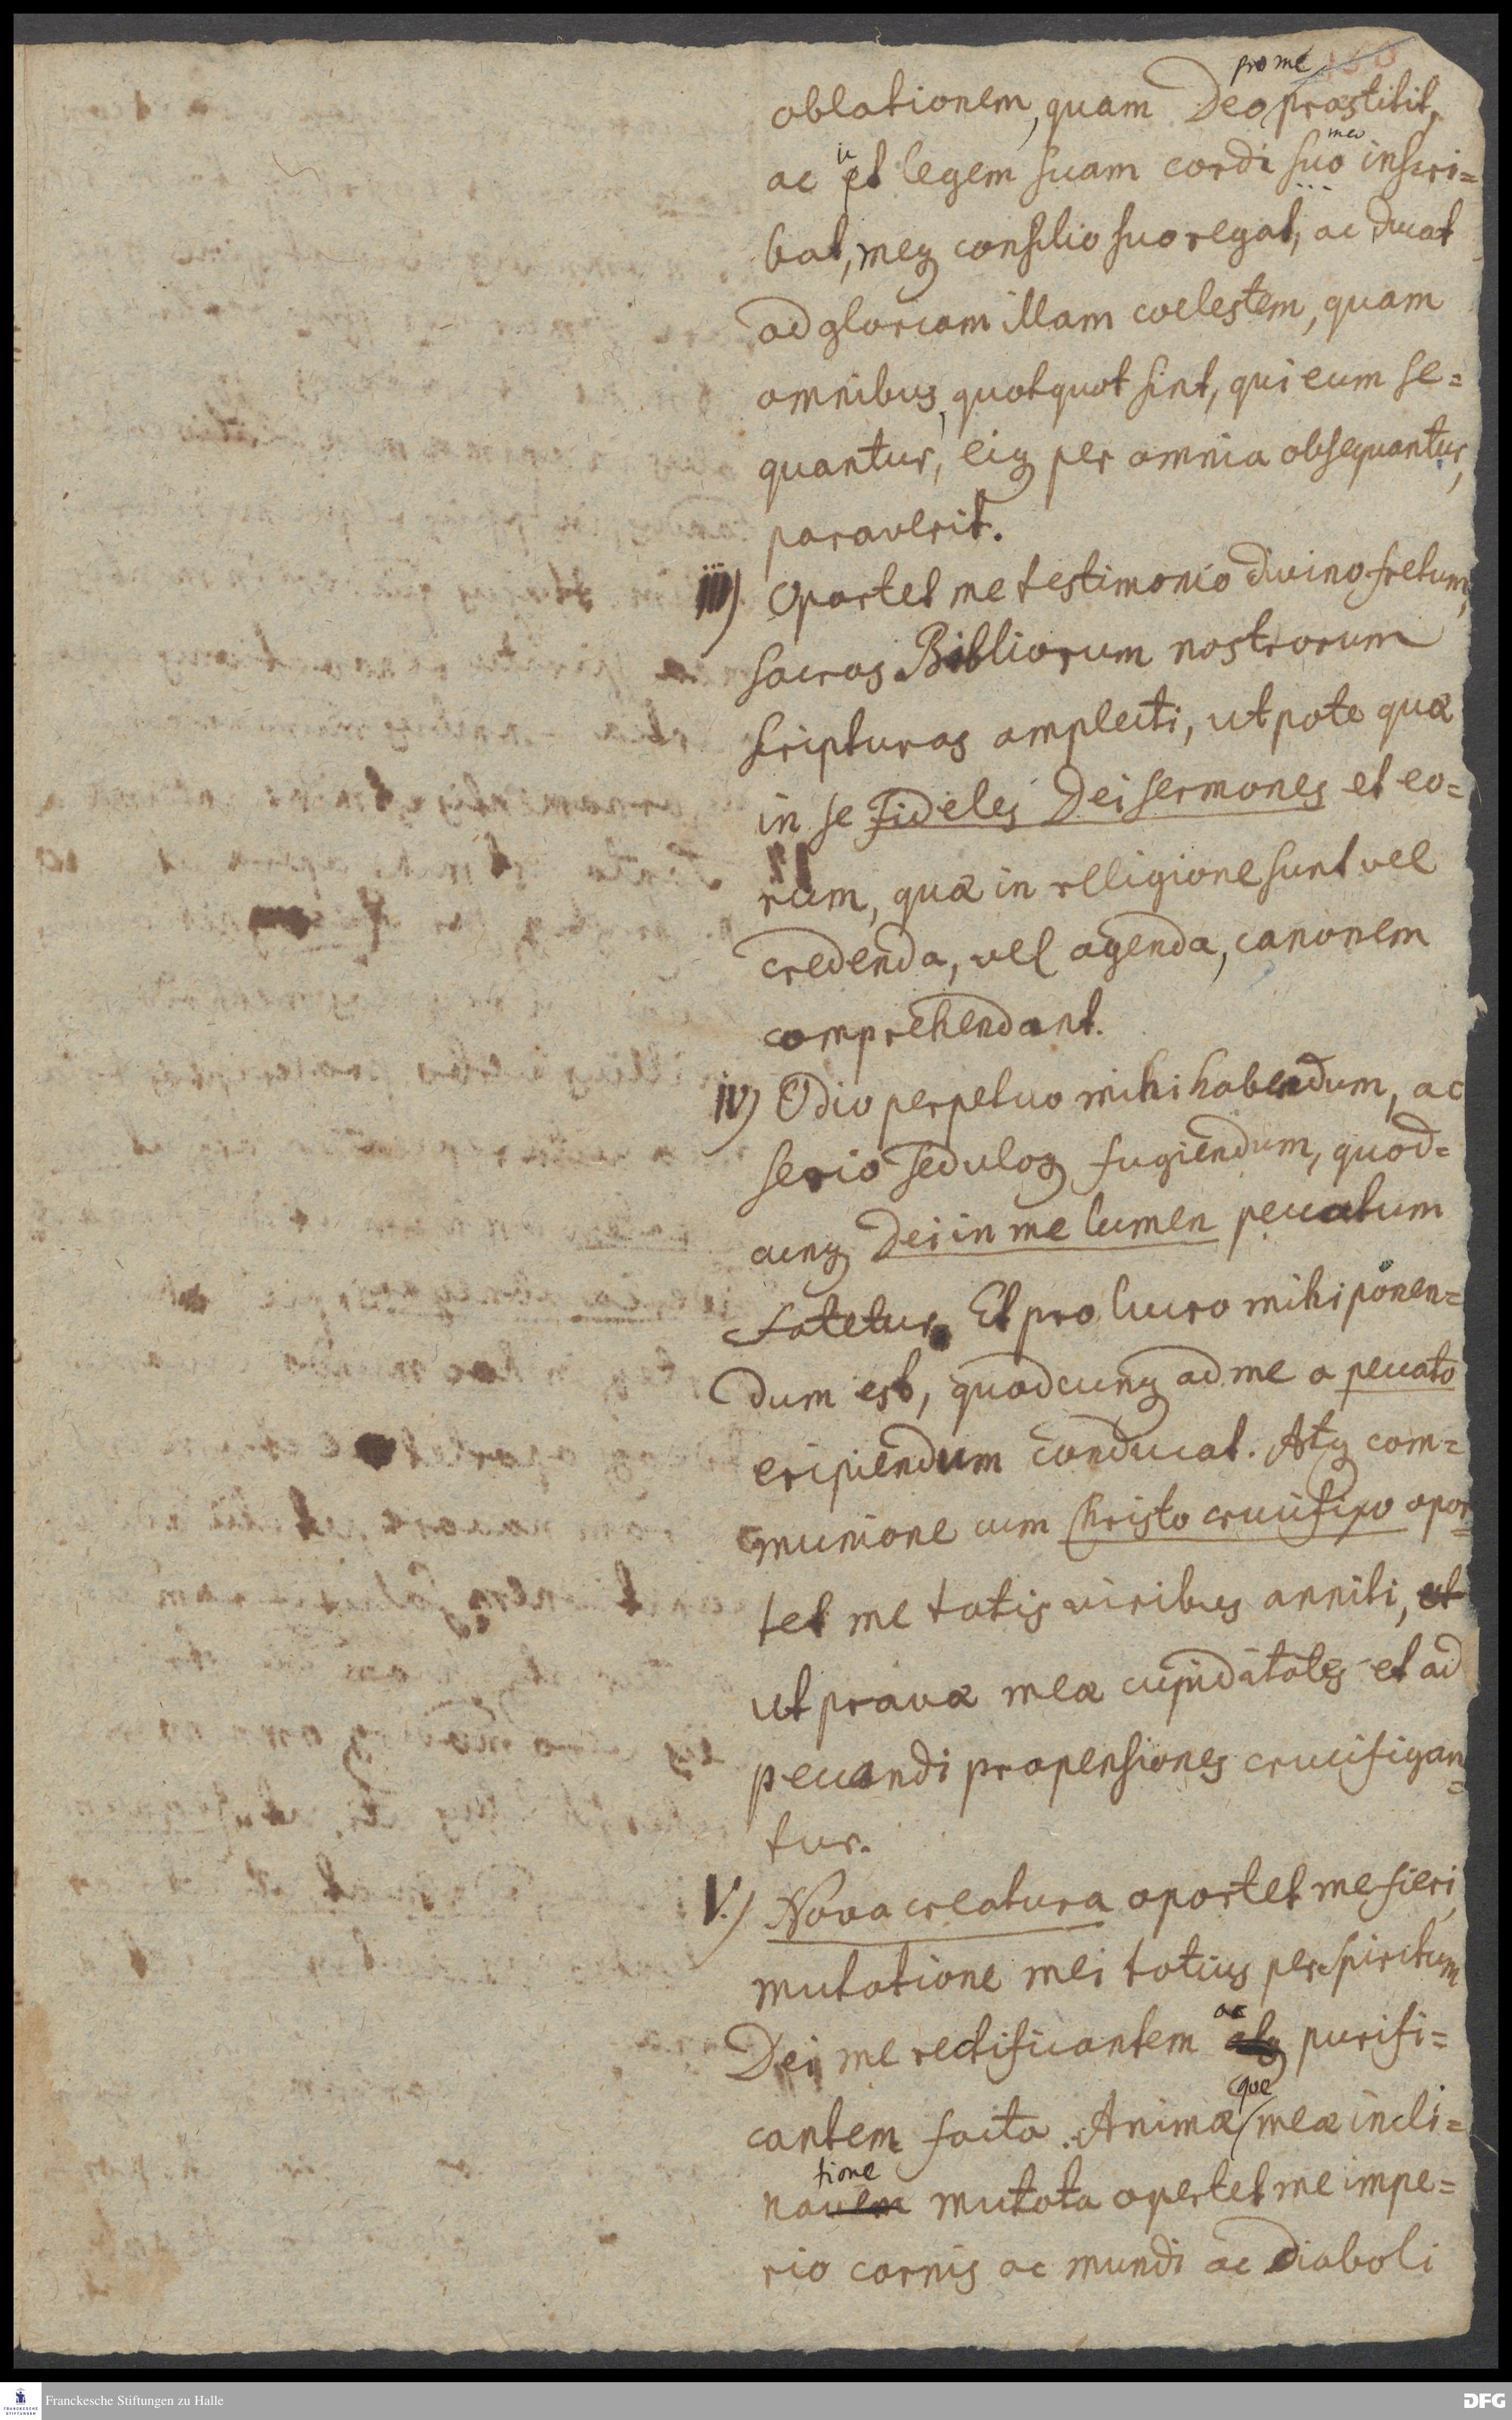 pro me
oblationem, quam Deo præstitit,
meo
ac ut legem suam cordi suo inscri=
bat, meq consilio suo regat, ac ducat
ad gloriam illam coelestem, quam
omnibus, quotquot sint, qui eum se=
quantur, eiq per omnia obsequantur,
paraverit.
iii) Oportet me testimonio divino fretum,
sacras Bibliorum nostrorum
scripturas amplecti, utpote quæ
in se fideles Dei sermones et eo=
rum, quæ in religione sunt vel
credenda, vel agenda, canonem
comprehendant.
iv) Odio perpetuo mihi habendum, ac
serio seduloq fugiendum, quod=
cunq Dei in me lumen peccatum
fatetur. Et pro lucro mihi ponen=
dum est, quodcunq ad me a peccato
eripiendum conducat. Atq com=
munione cum Christo crucifixo opor=
tet me totis viribus anniti, et
ut pravæ meæ cupiditates et ad
peccandi propensiones crucifigan=
tur.
V.) Nova creatura oportet me fieri,
mutatione mei totius per Spiritum
ac
Dei me rectificantem atq purifi=
que
cantem facta. Animæ meæ incli=
tione
navem mutata oportet me impe=
rio carnis ac mundi ac Diaboli
Franckesche Stiftungen zu Halle
FRANCKESCHE STIFTUNGEN
DFG